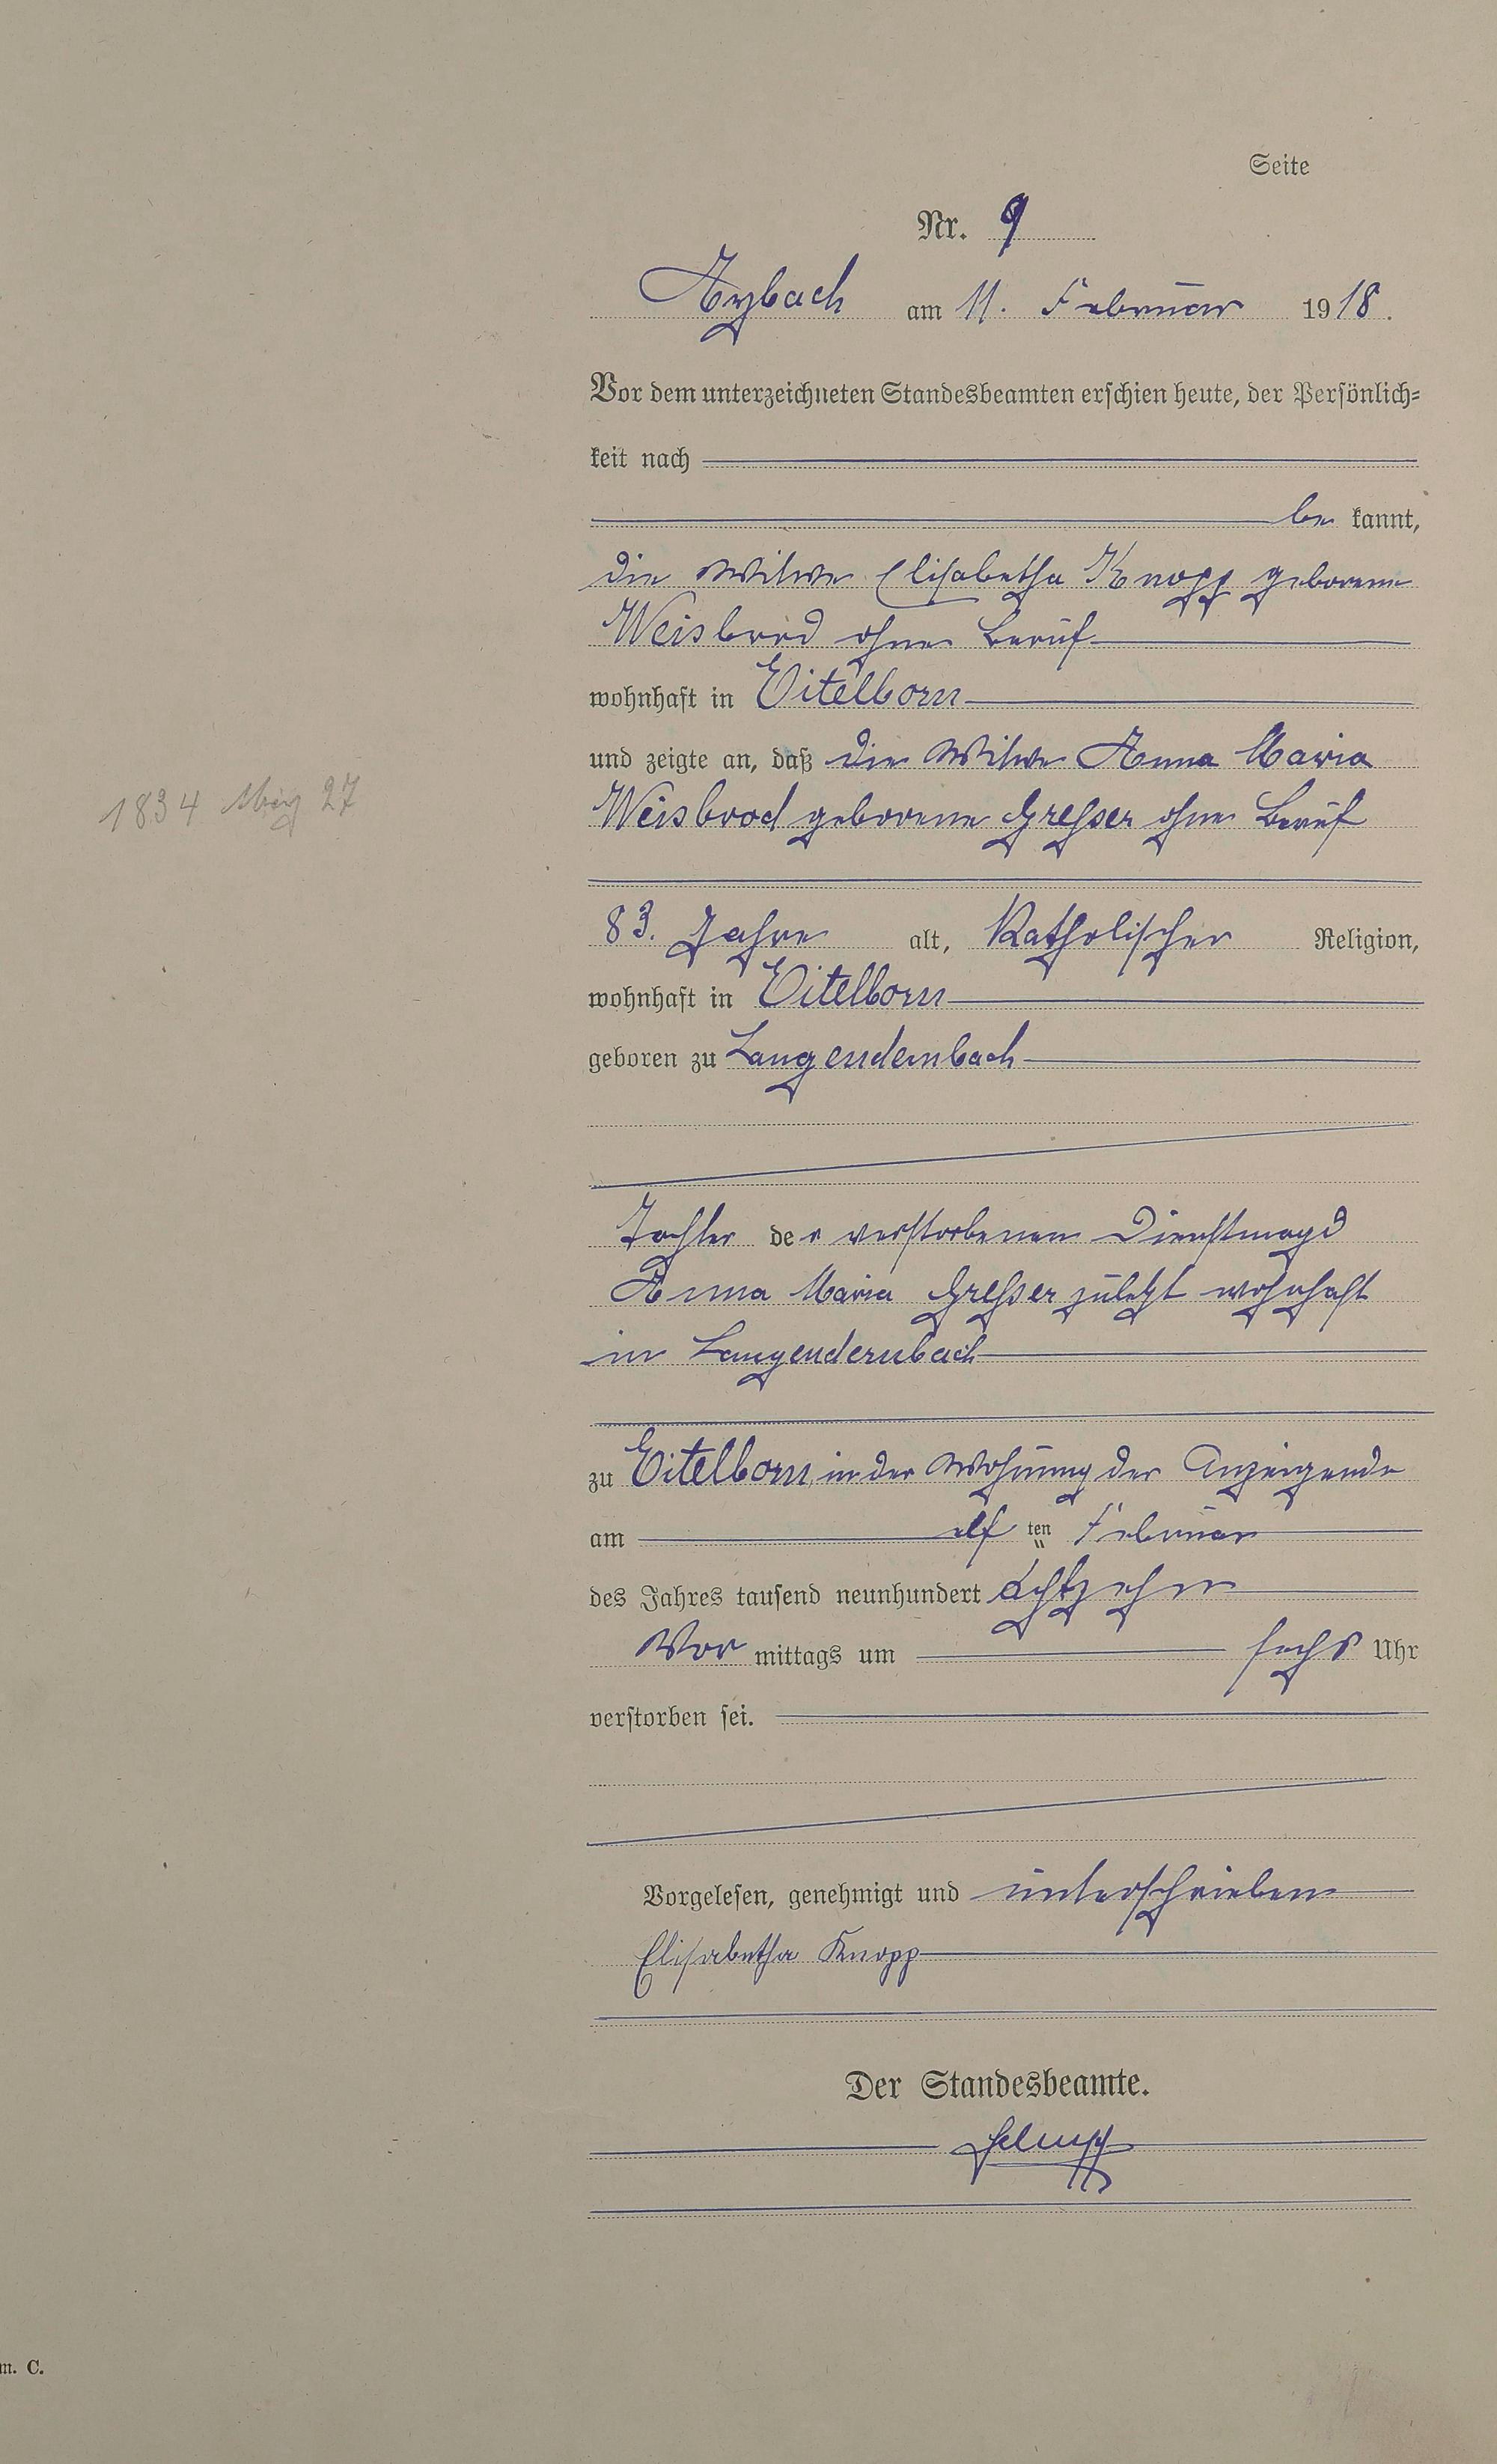 Seite
Nr. 9
Arzbach am 11. Februar 1918.
Vor dem unterzeichneten Standesbeamten erschien heute, der Persönlich=
keit nach
be kannt,
die Witwe Elisabetha Knopp geborene
Weisbrod ohne Beruf
wohnhaft in Eitelborn
und zeigte an, daß die Witwe Anna Maria
1834 27
Weisbrod geborene Greßer ohne Beruf
83. Jahre alt, Katholischer Religion,
wohnhaft in Eitelborn
geboren zu Langendernbach
Tochter der verstorbenen Dienstmagd
Anna Maria Greßer zuletzt wohnhaft
in Langendernbach
zu Eitelborn, in der Wohnung der Anzeigende
am elf ten Februar
des Jahres tausend neunhundert achtzehn
Vor mittags um sechs Uhr
verstorben sei.
Vorgelesen, genehmigt und unterschrieben
Elisabetha Knopp
Der Standesbeamte.
m. C.